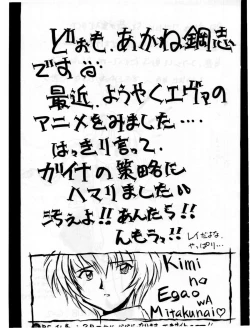 どおも、あかね鋼志
です
最近、ようやくエヴァの
アニメをみました‥‥
はっきり言って、
ガイナの策略に
ハマりました!!
汚ぇよ!!あんたら!!
んもうっ!!
レイだよな、
やっぱり…
Kimi
no
Egao
wA
MiTakunai♡